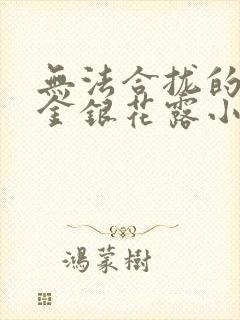 無法合拢的
金銀花露小
鴻蒙樹